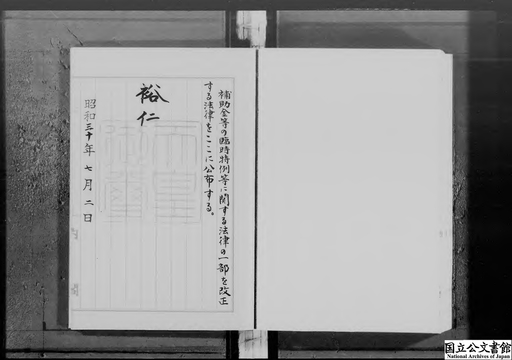 補助金等の臨時特例等に関する法律の一部を改正
する法律をここに公布する。
裕仁
昭和三十年七月二日
国立公文書館
National Archives of Japan